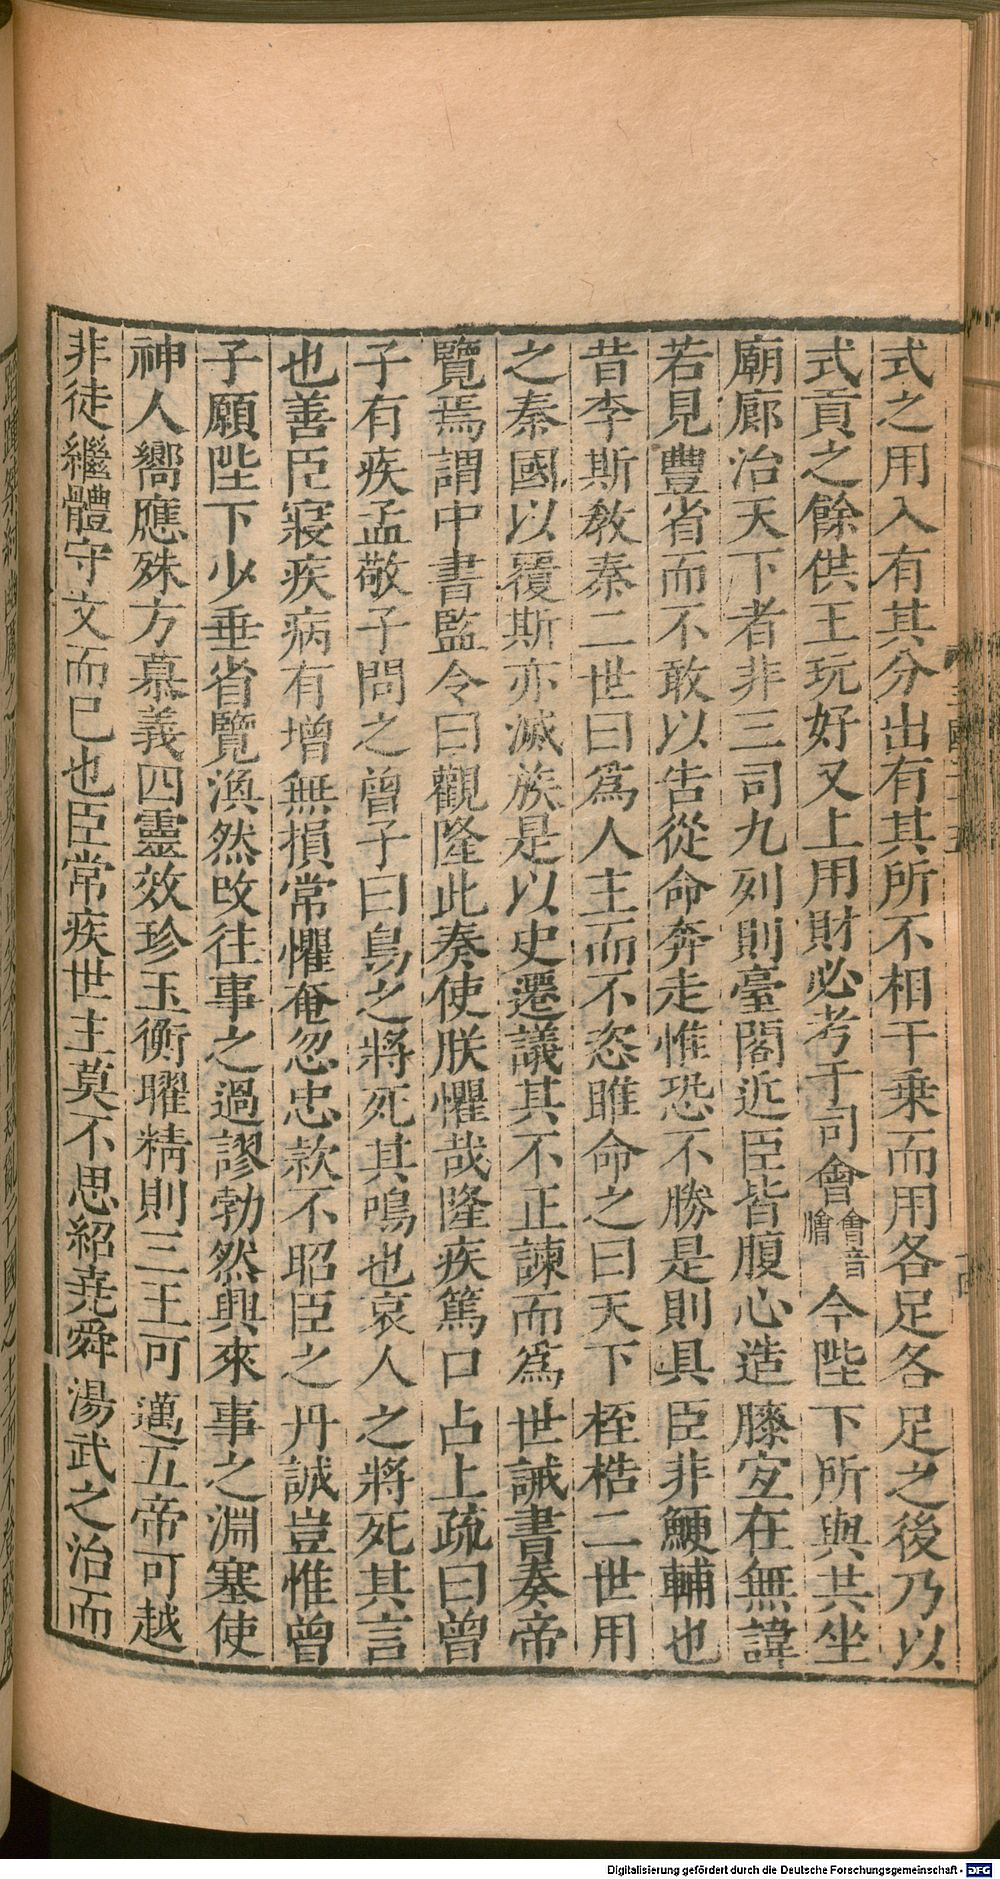 式之用入有其分出有其所不相干乗而用各足各足之後乃以
式貢之餘供王玩好又上用財必考于司會會音膾今陛下所與共坐
廟廊治天下者非三司九列則臺閣近臣皆腹心造膝宐在無諱
若見豐省而不敢以告從命奔走惟恐不勝是則具臣非鯁輔也
昔李斯敎秦二世曰爲人主而不恣睢命之曰天下桎梏二世用
之秦國以覆斯亦滅族是以史遷議其不正諫而爲世誡書奏帝
覽焉謂中書監令曰觀隆此奏使朕懼哉隆疾篤口占上疏曰曾
子有疾孟敬子問之曾子曰鳥之將死其鳴也哀人之將死其言
也善臣寢疾病有增無損常懼奄忽忠款不昭臣之丹誠豈惟曾
子願陛下少垂省覽渙然改往事之過謬勃然興來事之淵塞使
神人嚮應殊方慕義四靈效珍玉衡曜精則三王可邁五帝可越
非徒繼體守文而已也臣常疾世主莫不思紹堯舜湯武之治而
Digitalisierung gefördert durch die Deutsche Forschungsgemeinschaft - DFG